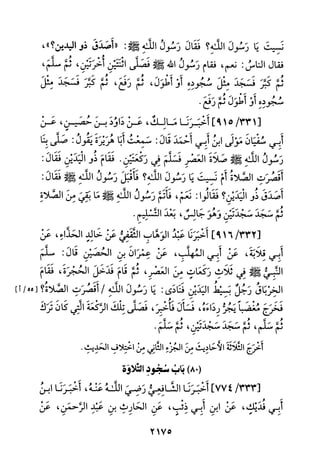 نَسِيتَ يَا رَسُولَ اللَّهِ؟ فَقَالَ رَسُولُ اللَّهِ ﷺ: «أَصَدَقَ ذو اليدين؟»،
فقال الناسُ: نعم، فقام رَسُولُ الله ﷺ فَصَلَّى اثْنَتَيْنِ أُخْرَتَيْنِ، ثُمَّ سلَّمَ،
ثُمَّ كَبَّرَ فَسَجَدَ مِثْلَ سُجُودِهِ أَوْ أَطْوَلَ، ثُمَّ رَفَعَ، ثُمَّ كَبَّرَ فَسَجَدَ مِثْلَ
سُجُودِهِ أَوْ أَطْوَلَ ثُمَّ رَفَعَ.
[٩١٥/٣٣١] أَخْبَـرَنَـا مَـالِـكٌ، عَـنْ دَاوُدَ بـنَ حُصَـيـنٍ، عَـنْ
أَبِـي سُفْيَانَ مَوْلَى ابنُ أَبِـي أَحْمَدَ قَالَ: سَمِعْتُ أَبَا هُرَيْرَةَ يَقُولُ: صَلَّى بِنَا
رَسُولُ اللَّهِ ﷺ صَلَاةَ العَصْرِ فَسَلَّمَ فِي رَكْعَتَيْنِ. فَقَامَ ذُو الْيَدَيْنِ فَقَالَ:
أَقصُرَتِ الصَّلَاةُ أَمْ نَسِيتَ يَا رَسُولَ اللَّهِ؟ فَأَقْبَلَ رَسُولُ اللَّهِ ﷺ فَقَالَ:
أَصَدَقَ ذُو الْيَدَيْنِ؟ فَقَالُوا: نَعَمْ، فَأَتَمَّ رَسُولُ اللَّهِ ﷺ مَا بَقِيَ مِنَ الصَّلَاةِ
ثُمَّ سَجَدَ سَجْدَتَيْنِ وَهُوَ جَالِسٌ، بَعْدَ التَّسْلِيمِ.
[٩١٦/٣٣٢] أَخْبَرَنَا عَبْدُ الوَهَّابِ الثَّقَفِيُّ عَنْ خَالِدٍ الحَذَّاءِ، عَنْ
أَبِـي قِلَابَةَ، عَنْ أَبِـي المُهلَّبِ، عَنْ عِمْرَانَ بنِ الحُصَيْنِ قَالَ: سلَّمَ
النَّبِـيُّ ﷺ فِي ثَلَاثِ رَكَعَاتٍ مِنَ العَصْرِ، ثُمَّ قَامَ فَدَخَلَ الحُجْرَةَ، فَقَامَ
الخِرْبَاقُ رَجُلٌ بَسِيْطُ الیَدَيْنِ فَنَادَى: يَا رَسُولَ اللَّهِ / أَقَصُرَتِ الصَّلَاةُ؟ [٥٥/أ]
فَخَرَجَ مُغْضَباً يَجُرُّ رِدَاءَهُ، فَسَأَلَ فَأُخْبِرَ، فَصَلَّى تِلْكَ الرَّكْعَةَ الَّتِي كَانَ تَرَكَ
ثُمَّ سَلَّمَ، ثُمَّ سَجَدَ سَجْدَتَيْنِ، ثُمَّ سَلَّمَ.
أَخْرَجَ الثَّلَاثَةَ الأَحَادِيثَ مِنَ الجُزْءِ الثَّانِي مِنِ اخْتِلَافِ الحَدِيثِ.
(٨٠) بَابُ سُجُودِ التِّلَاوَةِ
[٧٧٤/٣٣٣] أَخْبَـرَنَـا الشَّـافِـعِـيُّ رَضِـيَ اللَّـهُ عَنْـهُ، أَخْبَـرَنَـا ابـنُ
أَبِـي فُدَيْكٍ، عَنِ ابنِ أَبِـي ذِئْبٍ، عَنِ الحَارِثِ بنِ عَبْدِ الرَّحمَنِ، عَنْ
٢١٧٥